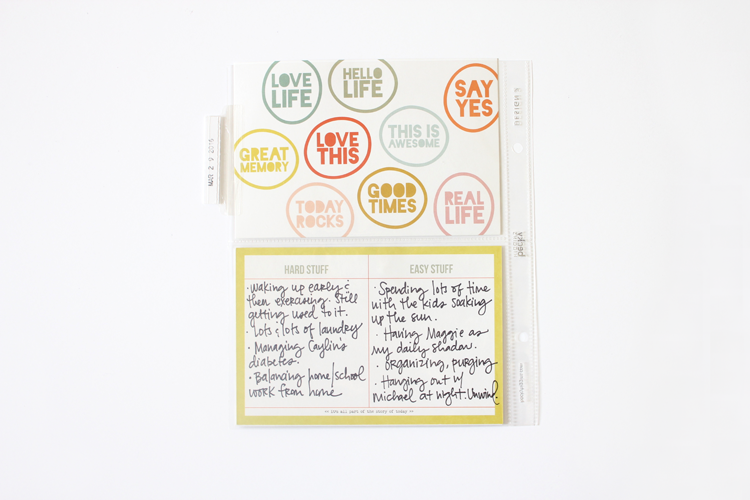 LOVE
LIFE
HELLO
LIFE
SAY
YES
GREAT
MEMORY
LOVE
THIS
THIS IS
AWESOME
TODAY
ROCKS
GOOD
TIMES
REAL
LIFE
HARD STUFF
· Waking up early &
then exercising. Still
getting used to it.
· Lots & lots of laundry
· Managing Caylin's
diabetes.
· Balancing home/school
work from home
EASY STUFF
· Spending lots of time
with the kids soaking
up the sun.
· Having Maggie as
my daily shadow.
· Organizing, purging
· Hanging out w/
Michael at night. Unwind.
it's all part of the story of today
becky